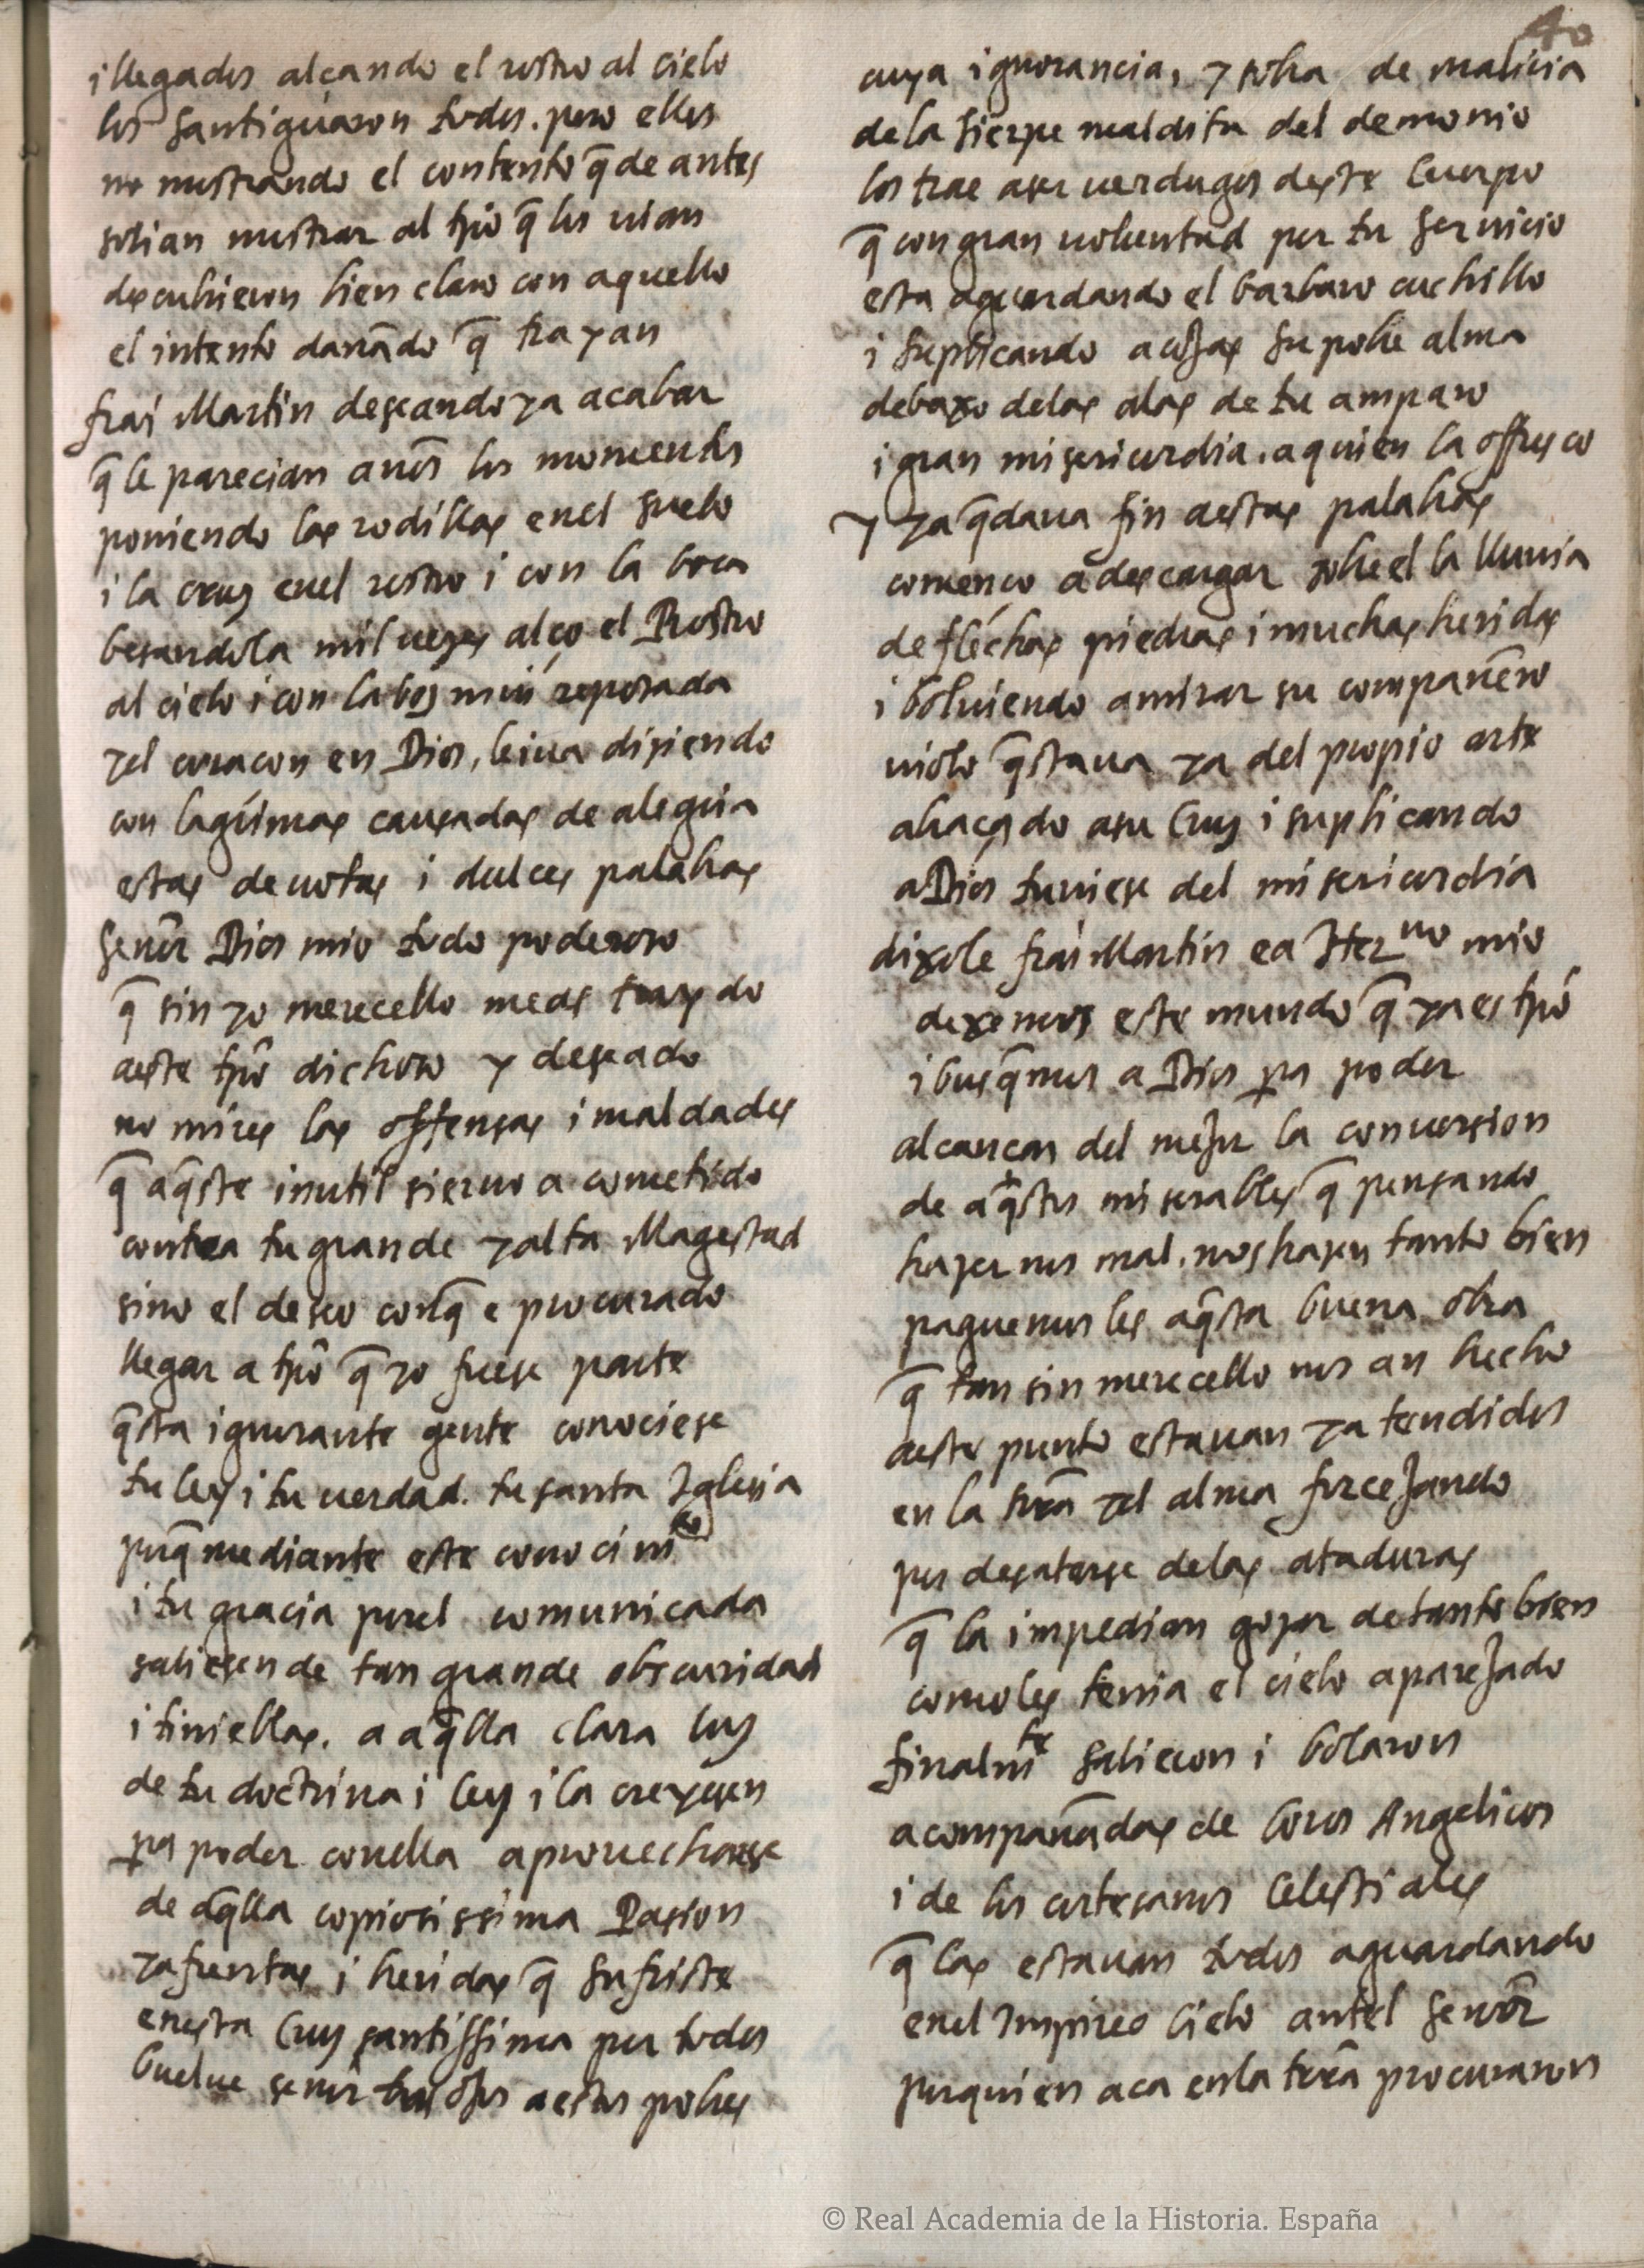 40
i llegados alçando el rostro al cielo
los santiguaron todos. pero ellos
no mostrando el contento q̃ de antes
solian mostrar al tpõ q̃ los uian
descubrieron bien claro con aquello
el intento danãdo q̃ trayan
frai Martin deseando ya acabar
q̃ le parecian anõs los momentos
poniendo las rodillas enel suelo
i la cruz enel rostro i con la boca
besandola mil uezes alço el Rostro
al cielo i con la boz mui reposada
yel coraçon en Dios, le iua disiendo
con lagrimas causadas de alegria
estas deuotas i dulces palabras
Senõr Dios mio todo poderoso
q̃ sin yo merecello meas traydo
aeste tpõ dichoso y deseado
no mires las offensas i maldades
q̃ aq̃ste inutil sieruo a cometido
contra tu grande yalta Magestad
sino el deseo conq̃ e procurado
llegar a tpõ q̃ yo fuese parte
q̃sta ignorante gente conociese
tu ley i tu uerdad. tu santa Iglesia
porq̃ mediante este conocimto
i tu gracia porel comunicada
saliesen de tan grande obscuridad
i tiniellas. a aq̃lla clara luz
de tu doctrina i ley i la creyesen
pa poder conella aprouecharse
de aq̃lla copiosissima Pasion
yafrentas i heridas q̃ sufriste
enesta Cruz santissima por todos
buelue senõr tus ojos aestos pobres
cuya ignorancia, y sobra de malicia
dela sierpe maldita del demonio
los trae aser uerdugos deste Cuerpo
q̃ con gran uoluntad por tu seruicio
esta aguardando el barbaro cuchillo
i suplicando acojas su pobre alma
debaxo delas alas de tu amparo
i gran misericordia. aquien la offresco
y ya q̃daua fin aestas palabras
comenco adescargar sobrel la lluuia
de flechas piedras i muchas heridas
i boluiendo amirar su companẽro
uiolo q̃staua ya del propio arte
abraçado asu Cruz i suplicando
aDios tuuiese del misericordia
dixole frai Martin ea Herno mio
dexemos este mundo q̃ yaes tpõ
i busq̃mos a Dios pa poder
alcancar del mejor la conuersion
de aq̃stos miserables q̃ pensando
hazernos mal. nos hazen tanto bien
paguemosles aq̃sta buena obra
q̃ tan sin merecello nos an hecho
aeste punto estauan ya tendidos
en la trrã yel alma forcejando
por desatarse delas ataduras
q̃ la impedian gozar de tanto bien
comoles tenia el cielo aparejado
finalmte salieron i bolaron
acompanãdas de Coros Angelicos
i de los cortesanos Celestiales
q̃ las estauan todos aguardando
enel Impireo Cielo antel Senõr
porquien aca enla trrã procuraron
© Real Academia de la Historia. España